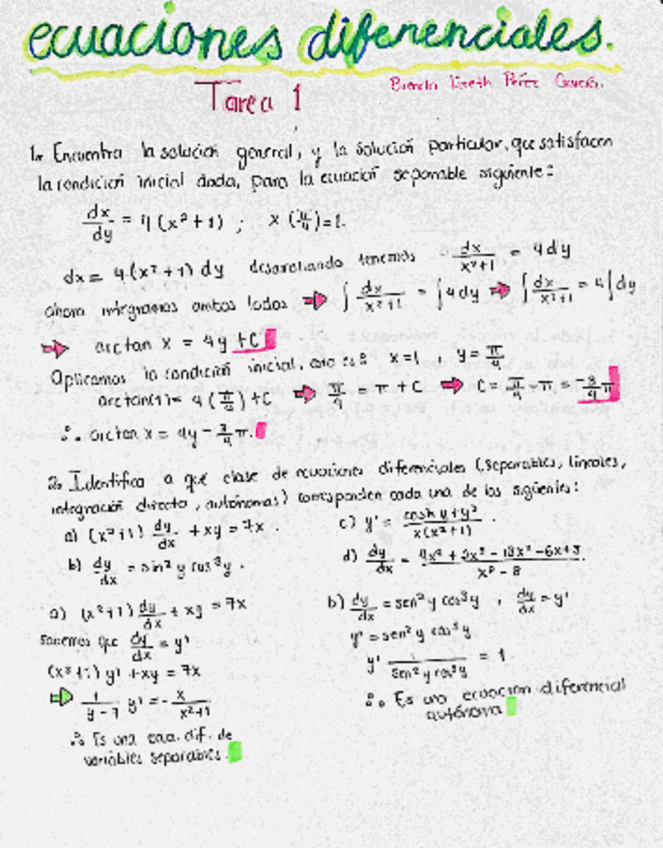 ecuaciones diferenciales.
Tarea 1
Brenda Lizeth Pérez García.
1.- Encuentra la solución general, y la solución particular, que satisfacen
la condición inicial dada, para la ecuación separable siguiente:
dx/dy = 4(x²+1) ; x(π/4)=1.
dx = 4(x²+1) dy desarrollando tenemos dx/x²+1 = 4dy
ahora integramos ambos lados ⇒ ∫ dx/x²+1 = ∫4dy ⇒ ∫ dx/x²+1 = 4∫dy
⇒ arctan x = 4y + C
Aplicamos la condición inicial, esto es: x=1, y = π/4
arctan(1) = 4(π/4)+C ⇒ π/4 = π + C ⇒ C = π/4 - π = -3/4 π
∴ arctan x = 4y - 3/4 π.
2.- Identifica a qué clase de ecuaciones diferenciales (separables, lineales,
integración directa, autónomas) corresponden cada una de las siguientes:
a) (x²+1) dy/dx + xy = 7x.
b) dy/dx = sin² y cos³ y.
c) y' = cosh y + y²/x(x²+1).
d) dy/dx =
a) (x²+1) dy/dx + xy = 7x
Sabemos que dy/dx = y'
(x²+1) y' + xy = 7x
⇒ 1/y-7 y' = - x/x²+1
∴ Es una ecua. dif. de
variables separables.
b) dy/dx = sen² y cos³ y, dy/dx = y'
y' = sen² y cos³ y
y' 1/sen² y cos³ y = 1
∴ Es una ecuación diferencial
autónoma